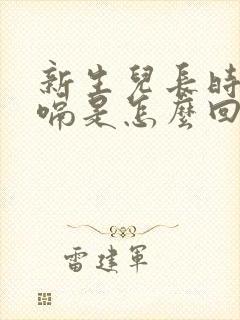 新生兒長時
嗝是怎麼回
雷建軍